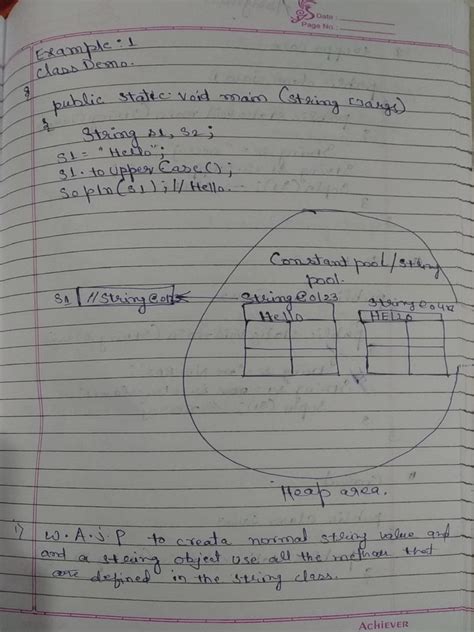 Date :
Page No. :
Example : 1
Class Demo.
{
public static void main (String []args)
{
String s1, s2 ;
s1 = "Hello";
s1. to upper Case();
Sopln(s1); // Hello.
Constant pool / String
pool.
String@0123
S1 //String@01
Hello
HEllo
Heap area.
1) W.A.J.P to create normal string value and
and a string object use all the methods that
are defined in the string class.
ACHIEVER